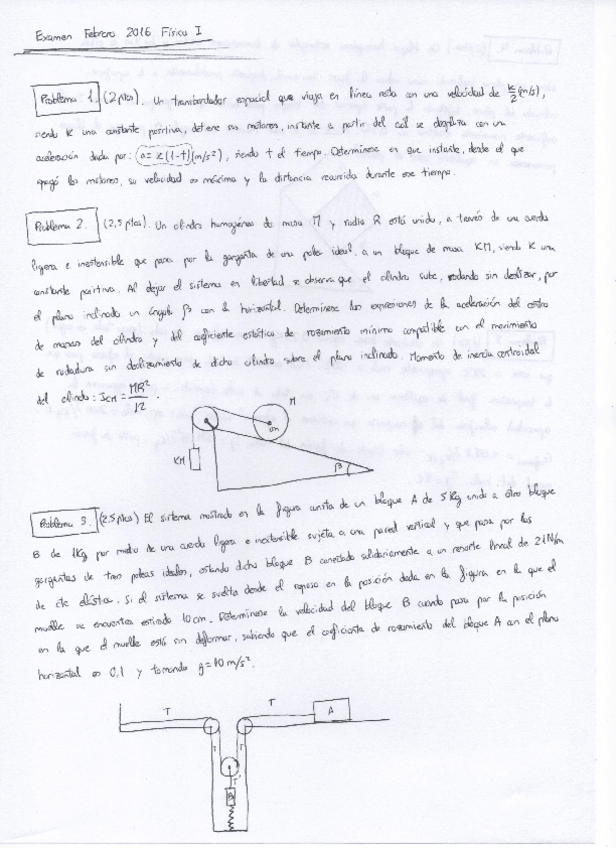 Examen Febrero 2016 Física I
Problema 1. (2 ptos). Un transbordador espacial que viaja en línea recta con una velocidad de K/2 (m/s),
siendo K una constante positiva, detiene sus motores, instante a partir del cual se desplaza con una
aceleración dada por: a = K(1-t) (m/s²), siendo t el tiempo. Determínese en que instante, desde el que
apagó los motores, su velocidad es máxima y la distancia recorrida durante ese tiempo.
Problema 2. (2,5 ptos). Un cilindro homogéneo de masa M y radio R está unido, a través de una cuerda
ligera e inextensible que pasa por la garganta de una polea ideal, a un bloque de masa KM, siendo K una
constante positiva. Al dejar el sistema en libertad se observa que el cilindro sube, rodando sin deslizar, por
el plano inclinado un ángulo β con la horizontal. Determínense las expresiones de la aceleración del centro
de masas del cilindro y del coeficiente estático de rozamiento mínimo compatible con el movimiento
de rodadura sin deslizamiento de dicho cilindro sobre el plano inclinado. Momento de inercia centroidal
del cilindro: ICM = MR²/12.
M
cm
KM
β
Problema 3. (2,5 ptos) El sistema mostrado en la figura consta de un bloque A de 5 Kg unido a otro bloque
B de 1Kg por medio de una cuerda ligera e inextensible sujeta a una pared vertical y que pasa por las
gargantas de tres poleas ideales, estando dicho bloque B conectado solidariamente a un resorte lineal de
de cte elástica. Si el sistema se suelta desde el reposo en la posición dada en la figura en la que el
muelle se encuentra estirado 10 cm. Determínese la velocidad del bloque B cuando pasa por la posición
en la que el muelle está sin deformar, sabiendo que el coeficiente de rozamiento del bloque A con el plano
horizontal es 0,1 y tomando g=10 m/s².
T
T
A
T
T
T'
B